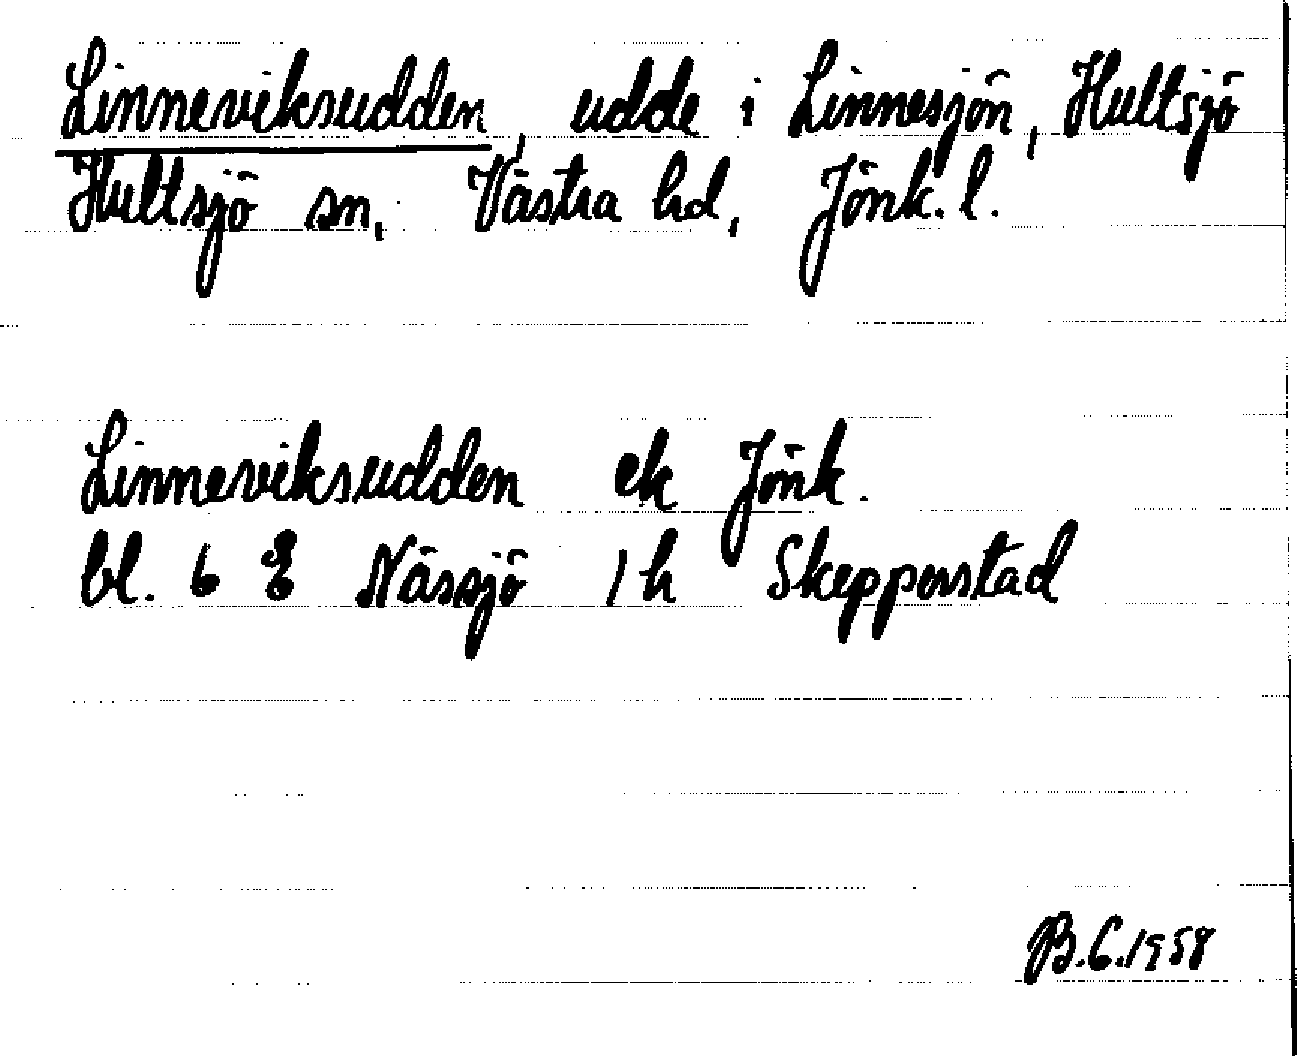 Linneviksudden, udde i Linnesjön, Hultsjö
Hultsjö sn, Västra hd, Jönk. l.
Linneviksudden ek Jönk.
bl. 6 E Nässjö 1 h Skepperstad
B.G.1958